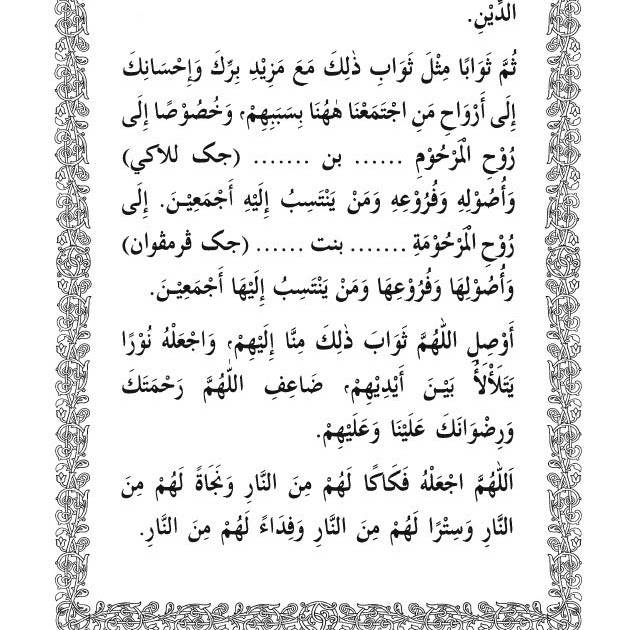 الدِّيْنِ.
ثُمَّ ثَوَابًا مِثْلَ ثَوَابِ ذٰلِكَ مَعَ مَزِيْدِ بِرِّكَ وَإِحْسَانِكَ
إِلَى أَرْوَاحِ مَنِ اجْتَمَعْنَا هٰهُنَا بِسَبَبِهِمْ، وَخُصُوْصًا إِلَى
رُوْحِ الْمَرْحُوْمِ ...... بن ....... (جک للاکي)
وَأُصُوْلِهِ وَفُرُوْعِهِ وَمَنْ يَنْتَسِبُ إِلَيْهِ أَجْمَعِيْنَ. إِلَى
رُوْحِ الْمَرْحُوْمَةِ ....... بنت ...... (جک ڤرمڤوان)
وَأُصُوْلِهَا وَفُرُوْعِهَا وَمَنْ يَنْتَسِبُ إِلَيْهَا أَجْمَعِيْنَ.
أَوْصِلِ اللّٰهُمَّ ثَوَابَ ذٰلِكَ مِنَّا إِلَيْهِمْ، وَاجْعَلْهُ نُوْرًا
يَتَلَأْلَأُ بَيْنَ أَيْدِيْهِمْ، ضَاعِفِ اللّٰهُمَّ رَحْمَتَكَ
وَرِضْوَانَكَ عَلَيْنَا وَعَلَيْهِمْ.
اَللّٰهُمَّ اجْعَلْهُ فَكَاكًا لَهُمْ مِنَ النَّارِ وَنَجَاةً لَهُمْ مِنَ
النَّارِ وَسِتْرًا لَهُمْ مِنَ النَّارِ وَفِدَاءً لَهُمْ مِنَ النَّارِ.